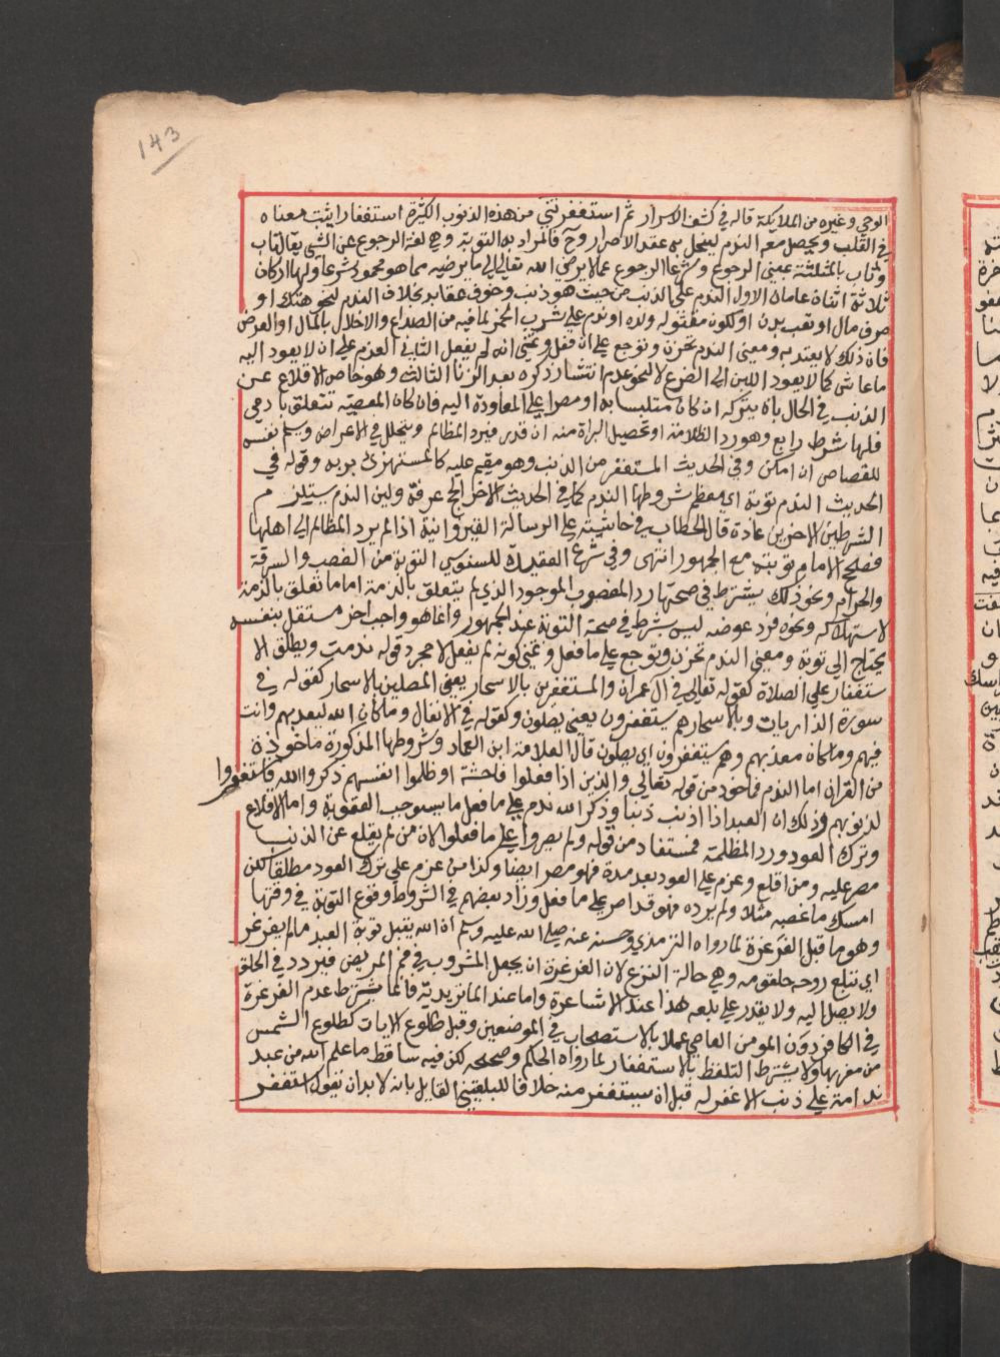 143
الوحي وغيره من الملايكة قاله في كشف الاسرار ثم استغفرتني من هذه الذنوب الكثيرة استغفارا يثبت معناه
في القلب ويحصل معه الندم لينحل به عقد الاصرار وح فالمراد به التوبة وهي لغة الرجوع عن الشي يقال تاب
وثاب بالمثلثة بمعني الرجوع وشرعا الرجوع عما لا يرضي الله تعالي الي ما يرضيه مما هو محمود شرعا ولها اركان
ثلاثة اثنان عامان الاول الندم علي الذنب من حيث هو ذنب وخوف عقابه بخلاف الندم لنحو هتك او
صرف مال او تعب بدن او لكون مقتوله ولده او ندم علي شرب الخمر لما فيه من الصداع والاخلال بالمال او العرض
فان ذلك لا يعتد به ومعني الندم تحزن وتوجع علي ان فعل وتمني انه لم يفعل الثاني العزم علي ان لا يعود اليه
ما عاش كما لا يعود اللبن الي الضرع لا لنحو عدم انتشار ذكره بعد الزنا الثالث وهو خاص الاقلاع عن
الذنب في الحال بان يتركه ان كان متلبسا به او مصرا علي المعاودة اليه فان كان المعصيه تتعلق بادمي
فلها شرط رابع وهو رد الظلامة او تحصيل البراة منه ان قدر فيرد المظالم ويتحلل في الاعراض ويسلم نفسه
للقصاص ان امكن وفي الحديث المستغفر من الذنب وهو مقيم عليه كالمستهزئ بربه وقوله في
الحديث الندم توبة اي معظم شروطها الندم كما في الحديث الاخر الحج عرفة ولين الندم يستلزم
الشرطين الاخرين عادة قال الحطاب في حاشيته علي الرسالة القيروانية اذا لم يرد المظالم الي اهلها
فصحح الامام توبته مع الجمهور انتهى وفي شرح العقيدة للسنوسي التوبة من الغصب والسرقة
والحرابه ونحو ذلك يشترط في صحتها رد المغصوب الموجود الذي لم يتعلق بالذمة اما ما تعلق بالذمة
لاستهلاكه ونحوه فرد عوضه ليس بشرط في صحة التوبة عند الجمهور وانما هو واجب اخر مستقل بنفسه
يحتاج الي توبة ومعني الندم تحزن وتوجع علي ما فعل وتمني كونه لم يفعل لا مجرد قوله ندمت ويطلق الا
ستغفار علي الصلاة كقوله تعالي في ال عمران والمستغفرين بالاسحار يعني المصلين بالاسحار كقوله في
سورة الذاريات وبالاسحار هم يستغفرون يعني يصلون وكقوله في الانفال وما كان الله ليعذبهم وانت
فيهم وما كان معذبهم وهم يستغفرون اي يصلون قال العلامة ابن العماد وشروطها المذكورة ماخوذة
من القران اما الندم فماخوذ من قوله تعالي والذين اذا فعلوا فاحشة او ظلموا انفسهم ذكروا الله فاستغفروا
لذنوبهم وذلك ان العبد اذا اذنب ذنبا وذكر الله ندم علي ما فعل ما يستوجب العقوبة واما الاقلاع
وترك العود ورد المظلمة فمستفاد من قوله ولم يصروا علي ما فعلوا لان من لم يقلع عن الذنب
مصر عليه ومن اقلع وعزم علي العود بعد مدة فهو مصر ايضا وكذا من عزم علي ترك العود مطلقا لكن
امسك ما غصبه مثلا ولم يرده فهو قد اصر علي ما فعل وزاد بعضهم في الشروط وقوع التوبة في وقتها
وهو ما قبل الغرغرة لما رواه الترمذي وحسنه عنه صلي الله عليه وسلم ان الله يقبل توبة العبد ما لم يغرغر
اي تبلغ روحه حلقومه وهي حالة النزع لان الغرغرة ان يجعل المشروب في فم المريض فيردد في الحلق
ولا يصل اليه ولا يقدر علي بلعه هذا عند الاشاعرة واما عند الماتريدية فانما يشترط عدم الغرغرة
في الكافر دون المومن العاصي عملا بالاستصحاب في الموضعين وقبل طلوع الايات كطلوع الشمس
من مغربها ولا يشترط التلفظ بالاستغفار لما رواه الحاكم وصححه لكن فيه ساقط ما علم الله من عبد
ندامة علي ذنب الا غفر له قبل ان يستغفر منه خلافا للبلقيني القايل بانه لا بد ان نقول استغفر